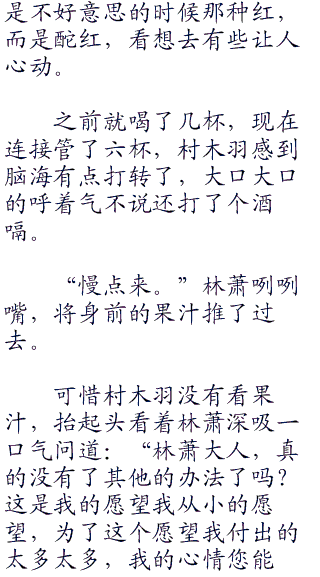 是不好意思的时候那种红，
而是酡红，看想去有些让人
心动。
之前就喝了几杯，现在
连接管了六杯，村木羽感到
脑海有点打转了，大口大口
的呼着气不说还打了个酒
嗝。
“慢点来。”林萧咧咧
嘴，将身前的果汁推了过
去。
可惜村木羽没有看果
汁，抬起头看着林萧深吸一
口气问道：“林萧大人，真
的没有了其他的办法了吗？
这是我的愿望我从小的愿
望，为了这个愿望我付出的
太多太多，我的心情您能